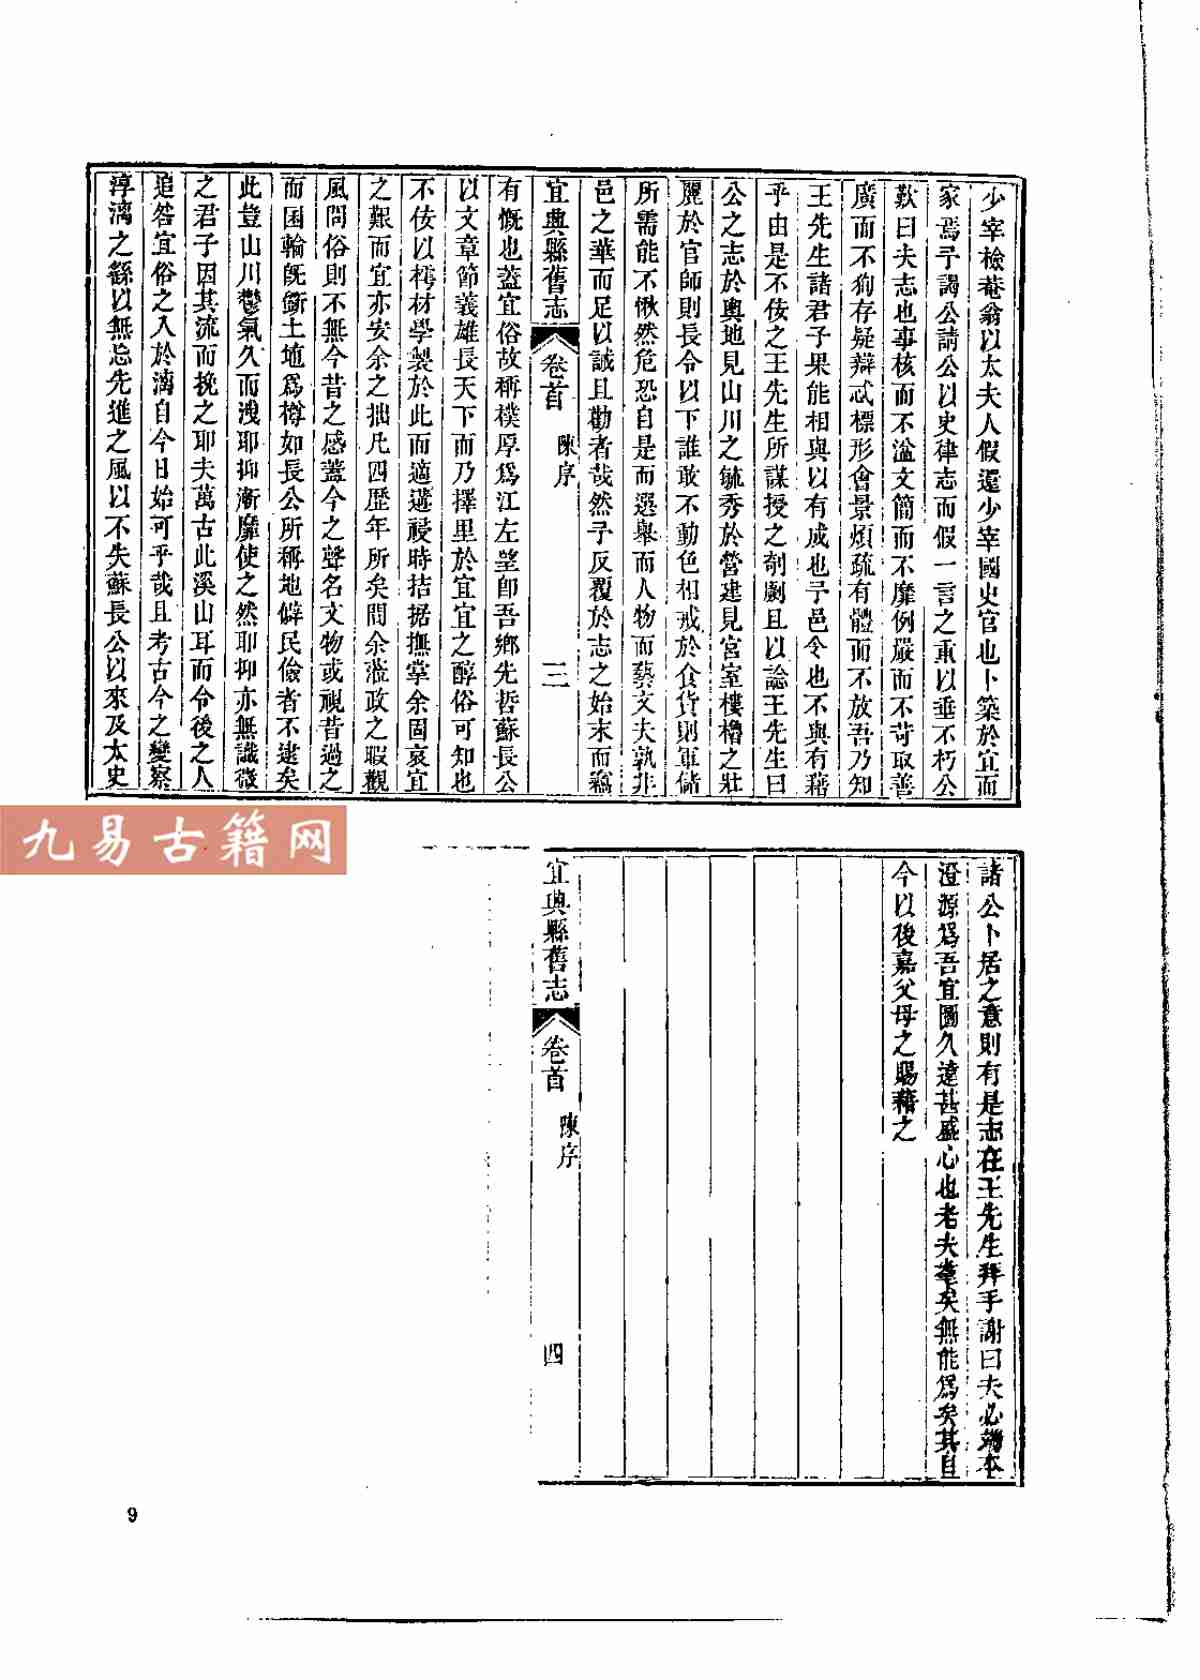 少宰檢菴翁以太夫人假還少宰國史官也卜築於宜而
家焉予謁公請公以史律志而假一言之重以垂不朽公
歎曰夫志也事核而不溢文簡而不靡例嚴而不苛取善
廣而不狥存疑辯忒標形會景煩疏有體而不放吾乃知
王先生諸君子果能相與以有成也予邑令也不與有藉
乎由是不佞之王先生所謀授之剞劂且以諗王先生曰
公之志於輿地見山川之毓秀於營建見宮室樓櫓之壯
麗於官師則長令以下誰敢不動色相戒於食貨則軍儲
所需能不愀然危恐自是而選舉而人物而藝文夫孰非
邑之華而足以誠且勸者哉然予反覆於志之始末而竊
宜興縣舊志
卷首
陳序
三
有慨也蓋宜俗故稱樸厚爲江左望卽吾鄉先哲蘇長公
以文章節義雄長天下而乃擇里於宜宜之醇俗可知也
不佞以樗材學製於此而適遘祲時拮据撫掌余固哀宜
之艱而宜亦安余之拙凡四歷年所矣間余蒞政之暇觀
風問俗則不無今昔之感蓋今之聲名文物或視昔過之
而囷輪旣斵土地爲樽如長公所稱地僻民儉者不逮矣
此豈山川鬱氣久而洩耶抑漸靡使之然耶抑亦無識微
之君子因其流而挽之耶夫萬古此溪山耳而令後之人
追咎宜俗之入於漓自今日始可乎哉且考古今之變察
淳漓之繇以無忘先進之風以不失蘇長公以來及太史
諸公卜居之意則有是志在王先生拜手謝曰夫必端本
澄源爲吾宜圖久遠甚盛心也老夫耄矣無能爲矣其自
今以後嘉父母之賜藉之
宜興縣舊志
卷首
陳序
四
9
九易古籍网